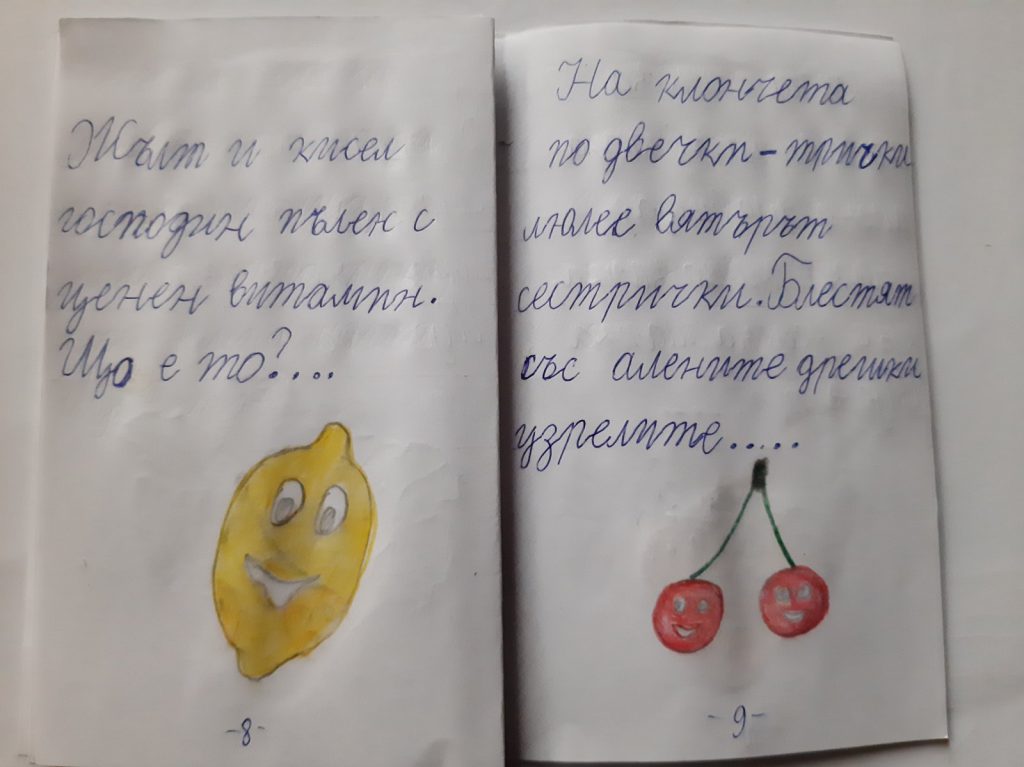 Жълт и кисел
господин пълен с
ценен витамин.
Що е то?....
-8-
На клончета
по двечки-трички
люлее вятърът
сестрички. Блестят
със алените дрешки
узрелите.....
-9-